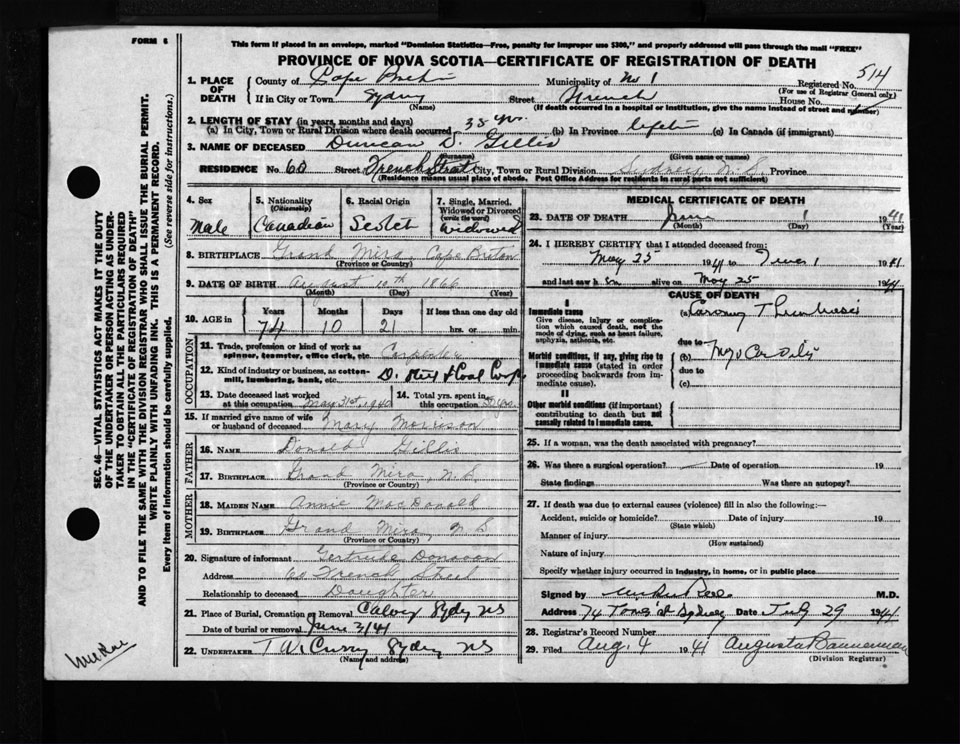 FORM 6
This form if placed in an envelope, marked "Dominion Statistics—Free, penalty for improper use $300," and properly addressed will pass through the mail "FREE"
PROVINCE OF NOVA SCOTIA—CERTIFICATE OF REGISTRATION OF DEATH
1. PLACE OF DEATH County of Cape Breton Municipality of No 1 Registered No. 514
(For use of Registrar General only)
If in City or Town Sydney Street French House No.
(Name) (If death occurred in a hospital or institution, give the name instead of street and number)
2. LENGTH OF STAY (in years, months and days)
(a) In City, Town or Rural Division where death occurred 35 yrs. (b) In Province life (c) In Canada (if immigrant)
3. NAME OF DECEASED Duncan D. Gillis
(Surname) (Given name or names)
RESIDENCE No. 60 Street French Street City, Town or Rural Division Sydney N.S. Province
(Residence means usual place of abode. Post Office Address for residents in rural parts not sufficient)
4. Sex Male
5. Nationality (Citizenship) Canadian
6. Racial Origin Scotch
7. Single, Married, Widowed or Divorced (write the word) Widowed
8. BIRTHPLACE Grand Mira, Cape Breton
(Province or Country)
9. DATE OF BIRTH August 10th 1866
(Month) (Day) (Year)
10. AGE in Years Months Days If less than one day old
74 10 21 hrs. or min.
OCCUPATION
11. Trade, profession or kind of work as spinner, teamster, office clerk, etc. Carpenter
12. Kind of industry or business, as cotton-mill, lumbering, bank, etc. D. Steel & Coal Corp
13. Date deceased last worked at this occupation May 31st, 1940
14. Total yrs. spent in this occupation yrs.
15. If married give name of wife or husband of deceased Mary Morrison
FATHER
16. NAME Donald Gillis
17. BIRTHPLACE Grand Mira, N.S.
(Province or Country)
MOTHER
18. MAIDEN NAME Annie MacDonald
19. BIRTHPLACE Grand Mira, N.S.
(Province or Country)
20. Signature of informant Gertrude Donovan
Address 60 French Street
Relationship to deceased Daughter
21. Place of Burial, Cremation or Removal Calvary Sydney NS
Date of burial or removal June 3/41
22. UNDERTAKER T W Curry Sydney NS
(Name and address)
MEDICAL CERTIFICATE OF DEATH
23. DATE OF DEATH June 1 1941
(Month) (Day) (Year)
24. I HEREBY CERTIFY that I attended deceased from:
May 25 1941 to June 1 1941
and last saw h im alive on May 25 1941
CAUSE OF DEATH
I
Immediate cause
Give disease, injury or complication which caused death, not the mode of dying, such as heart failure, asphyxia, asthenia, etc.
(a) Coronary Thrombosis
due to
Morbid conditions, if any, giving rise to immediate cause (stated in order proceeding backwards from immediate cause).
(b) Myocarditis
due to
(c)
II
Other morbid conditions (if important) contributing to death but not causally related to immediate cause.
25. If a woman, was the death associated with pregnancy?
26. Was there a surgical operation? — Date of operation 19
State findings Was there an autopsy?
27. If death was due to external causes (violence) fill in also the following:—
Accident, suicide or homicide? Date of injury 19
(State which)
Manner of injury
(How sustained)
Nature of injury
Specify whether injury occurred in industry, in home, or in public place
Signed by M.D.
Address 74 Date July 29 1941
28. Registrar's Record Number
29. Filed Aug. 4 1941 Augusta Bannerman
(Division Registrar)
SEC. 46—VITAL STATISTICS ACT MAKES IT THE DUTY
OF THE UNDERTAKER OR PERSON ACTING AS UNDER-
TAKER TO OBTAIN ALL THE PARTICULARS REQUIRED
IN THE "CERTIFICATE OF REGISTRATION OF DEATH"
AND TO FILE THE SAME WITH THE DIVISION REGISTRAR WHO SHALL ISSUE THE BURIAL PERMIT.
WRITE PLAINLY WITH UNFADING INK. THIS IS A PERMANENT RECORD.
Every item of information should be carefully supplied. (See reverse side for instructions.)